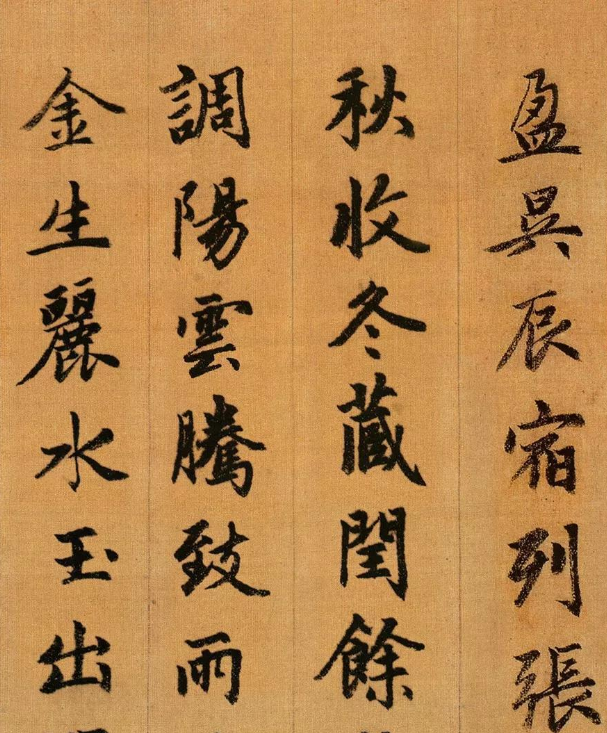 盈昃辰宿列張
秋收冬蔵閏餘
調陽雲騰致雨
金生麗水玉出